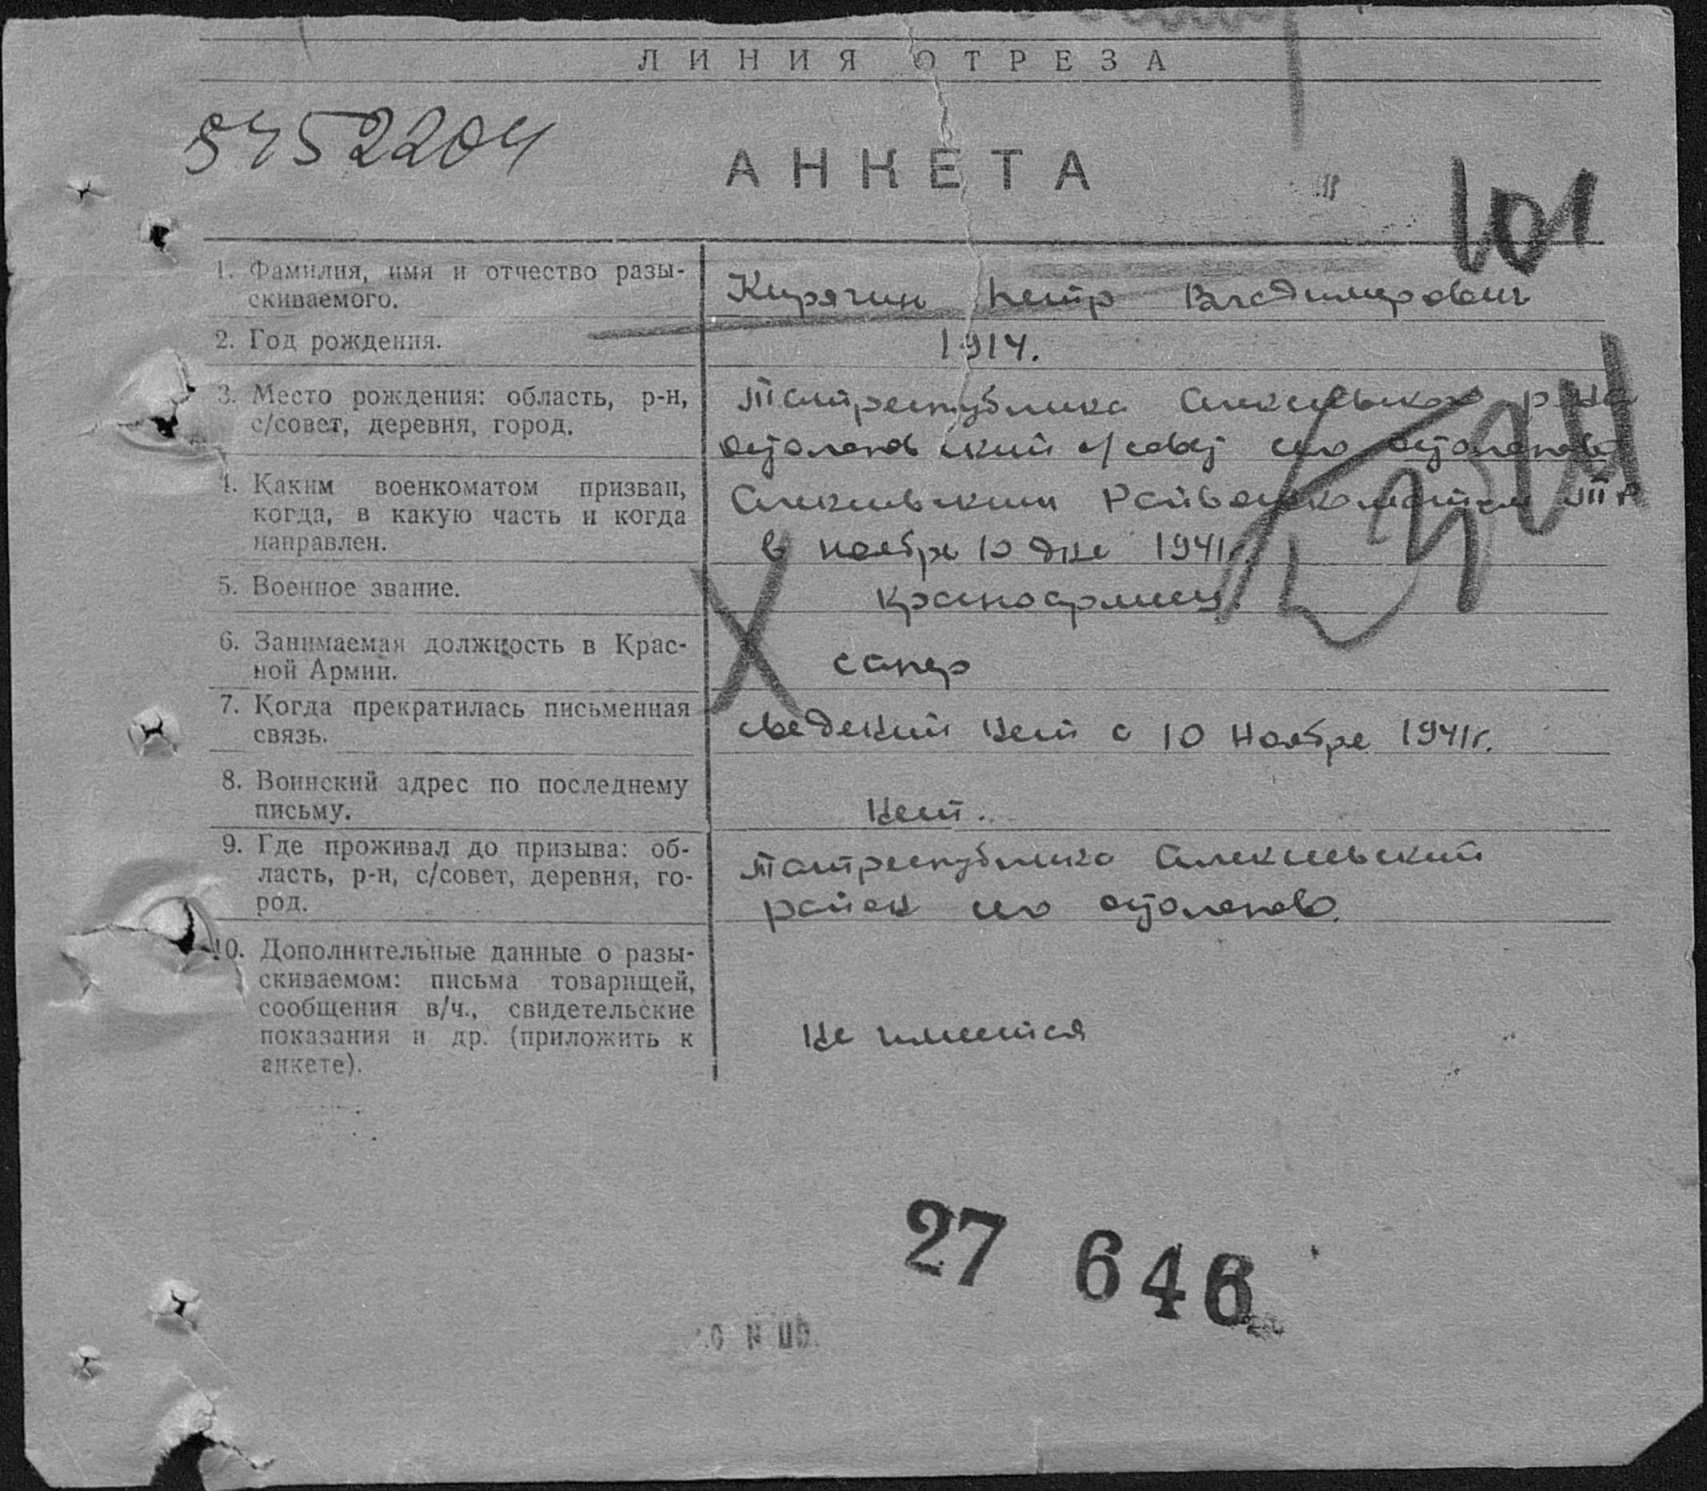 ЛИНИЯ ОТРЕЗА
5452204
АНКЕТА
101
1. Фамилия, имя и отчество разы-
скиваемого.
Кирягин Петр Владимирович
2. Год рождения.
1914.
3. Место рождения: область, р-н,
с/совет, деревня, город.
Татреспублика Алексеевского р-на
с/совет село
4. Каким военкоматом призван,
когда, в какую часть и когда
направлен.
Алексеевским Райвоенкоматом ТР
в ноябре 10 дня 1941г
5. Военное звание.
красноармеец
6. Занимаемая должность в Крас-
ной Армии.
сапер
7. Когда прекратилась письменная
связь.
сведений нет с 10 Ноября 1941г.
8. Воинский адрес по последнему
письму.
Нет.
9. Где проживал до призыва: об-
ласть, р-н, с/совет, деревня, го-
род.
Татреспублика Алексеевский
район село
10. Дополнительные данные о разы-
скиваемом: письма товарищей,
сообщения в/ч., свидетельские
показания и др. (приложить к
анкете).
Не имеется
27 646